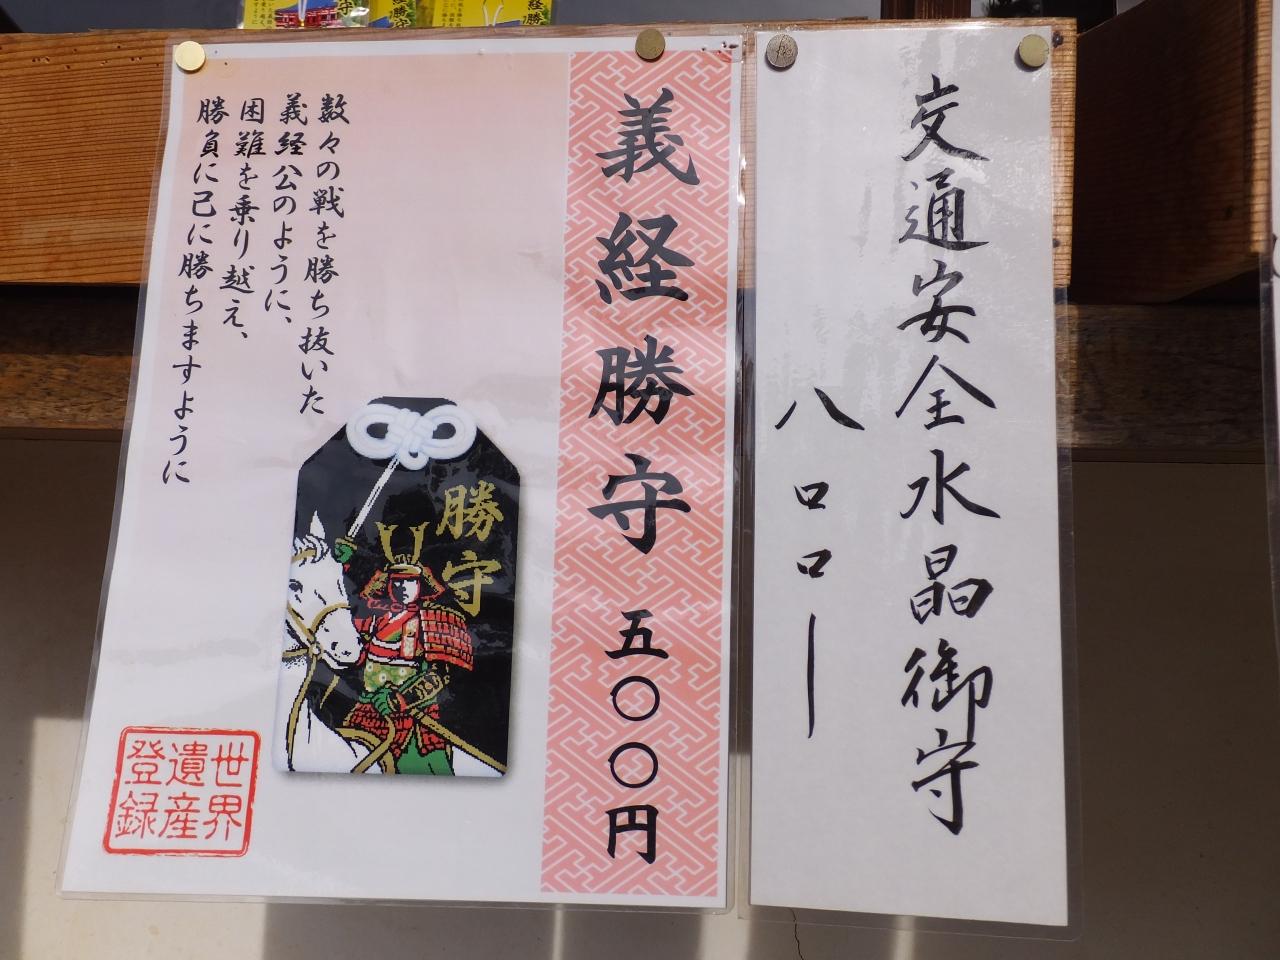 交通安全水晶御守
八〇〇ー
義経勝守 五〇〇円
数々の戦を勝ち抜いた
義経公のように、
困難を乗り越え、
勝負に己に勝ちますように
勝守
世界
遺産
登録